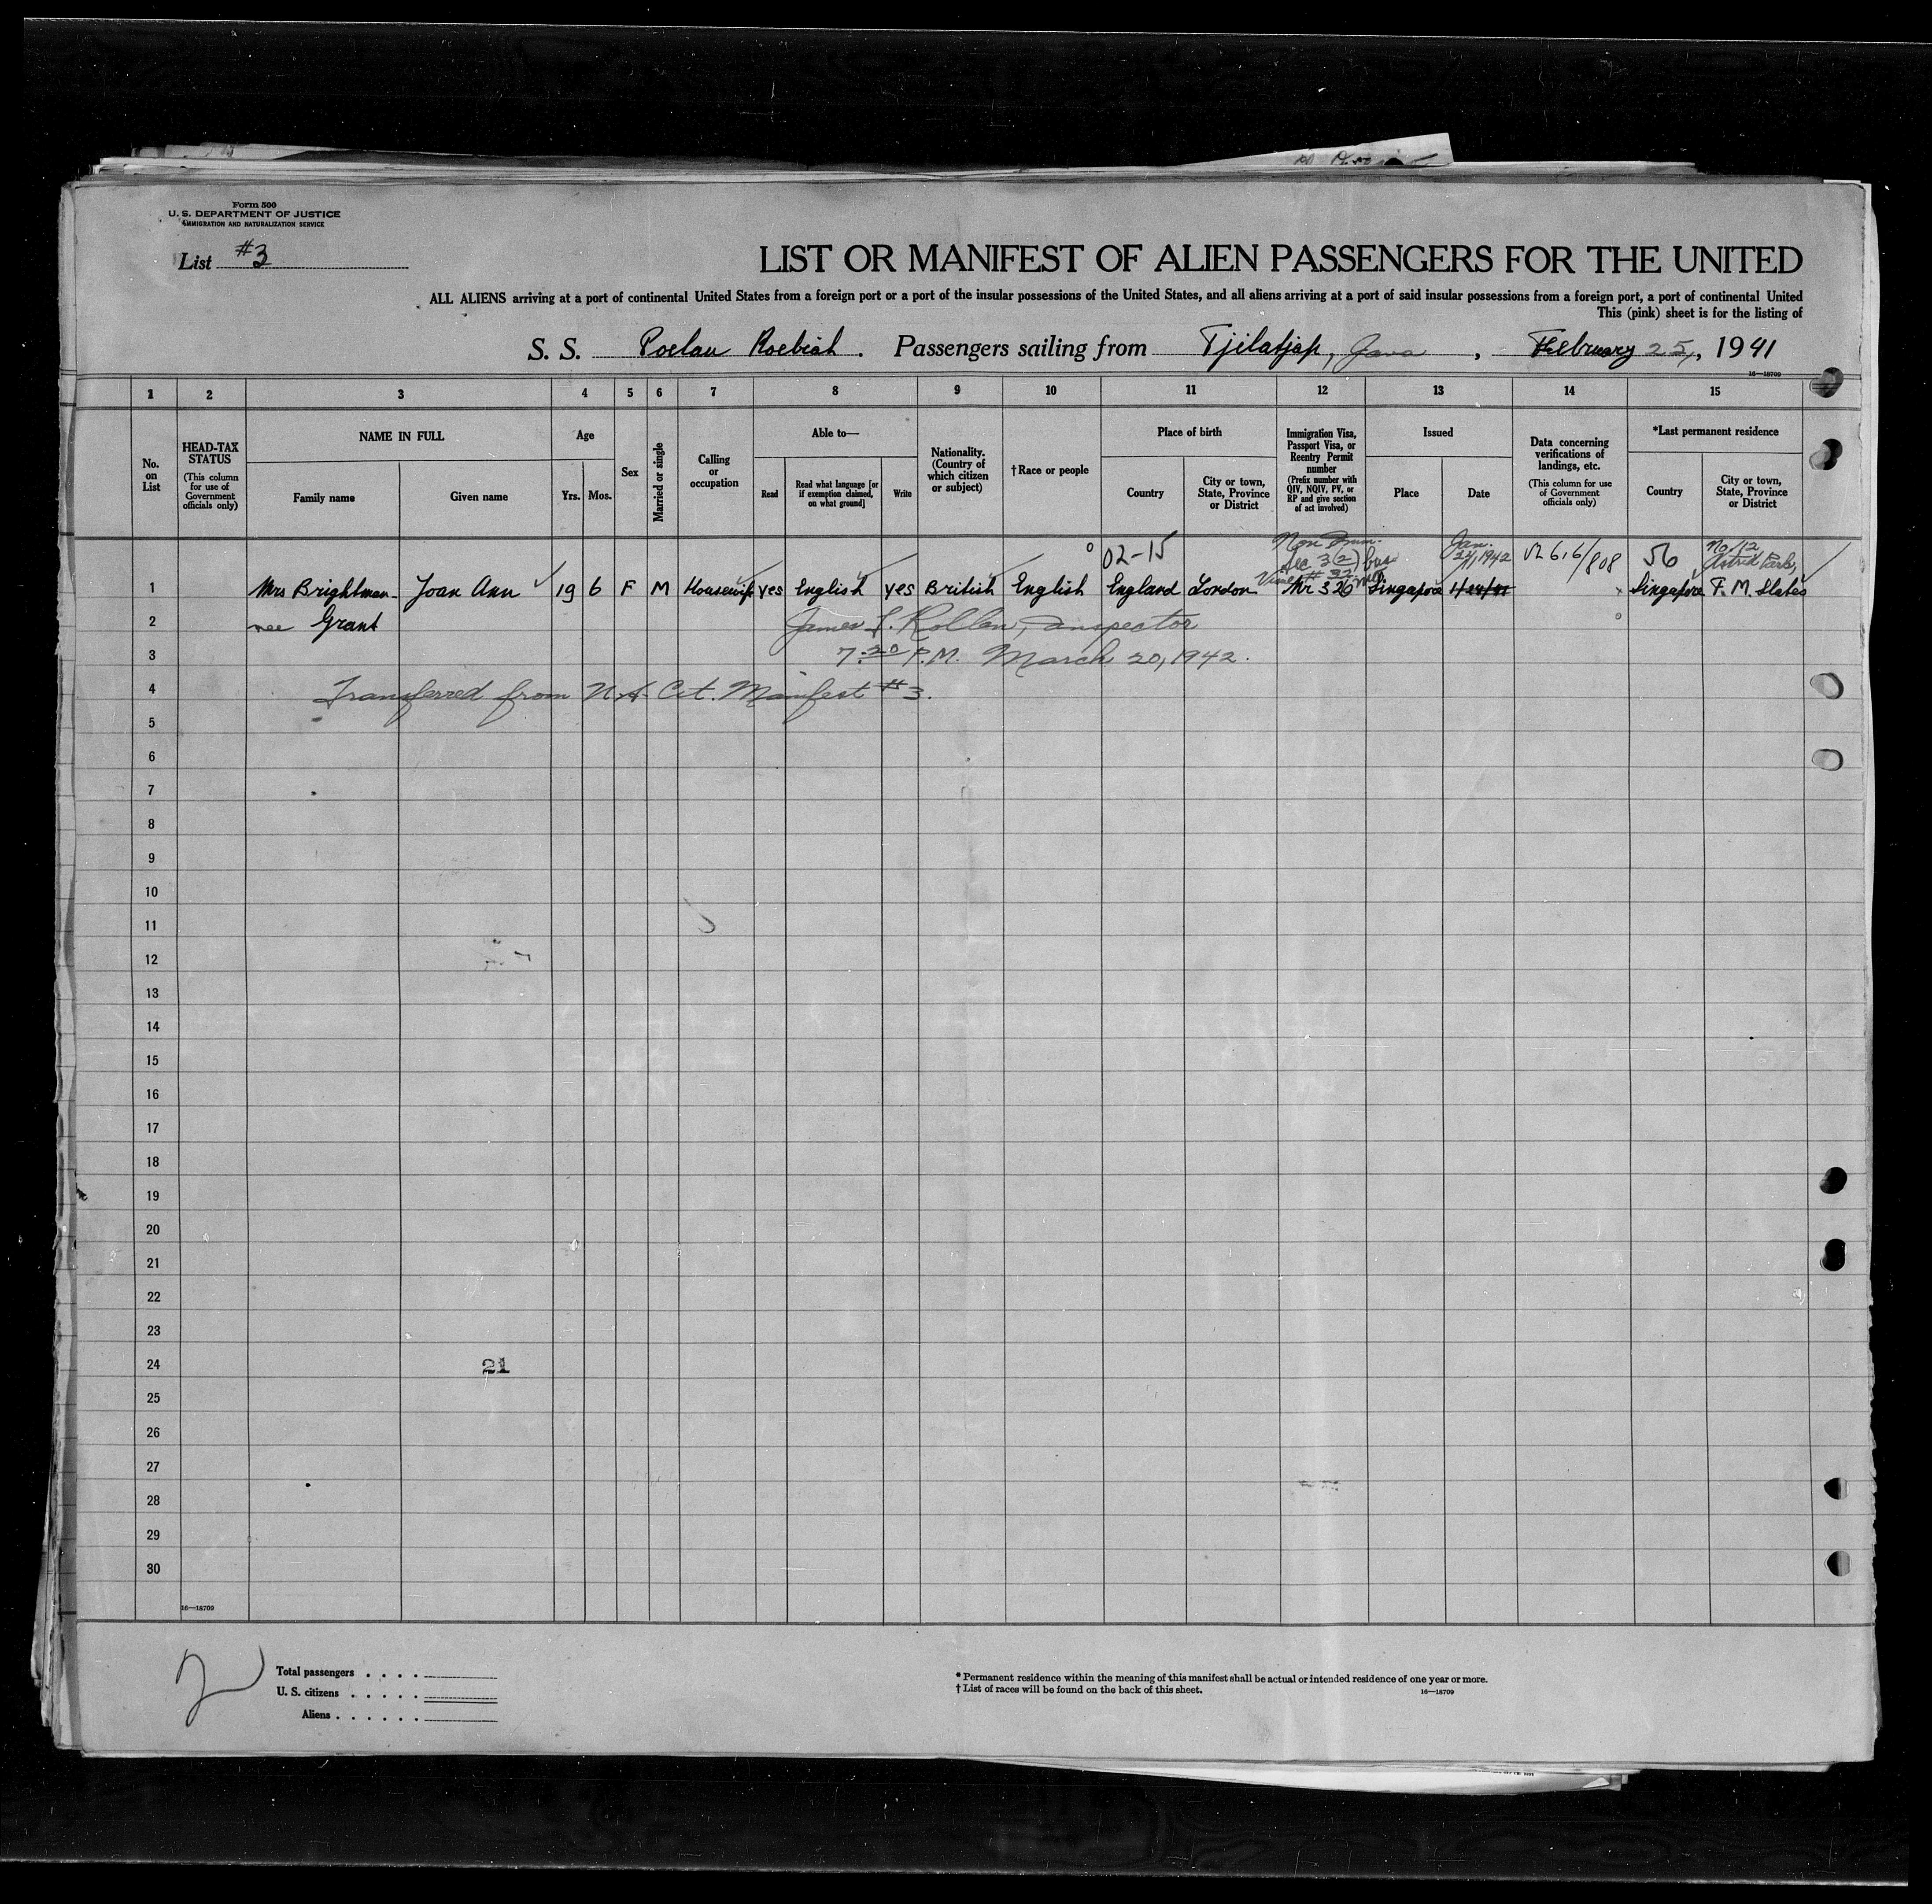 Form 500
U. S. DEPARTMENT OF JUSTICE
IMMIGRATION AND NATURALIZATION SERVICE
List #3
LIST OR MANIFEST OF ALIEN PASSENGERS FOR THE UNITED
ALL ALIENS arriving at a port of continental United States from a foreign port or a port of the insular possessions of the United States, and all aliens arriving at a port of said insular possessions from a foreign port, a port of continental United
This (pink) sheet is for the listing of
S. S. Poelau Roebiah. Passengers sailing from Tjilatjap, Java, February 25, 1941
16—18709
1 2 3 4 5 6 7 8 9 10 11 12 13 14 15
No. on List
HEAD-TAX STATUS
(This column for use of Government officials only)
NAME IN FULL
Family name
Given name
Age
Yrs.
Mos.
Sex
Married or single
Calling or occupation
Able to—
Read
Read what language [or if exemption claimed, on what ground]
Write
Nationality. (Country of which citizen or subject)
†Race or people
Place of birth
Country
City or town, State, Province or District
Immigration Visa, Passport Visa, or Reentry Permit number
(Prefix number with QIV, NQIV, PV, or RP and give section of act involved)
Issued
Place
Date
Data concerning verifications of landings, etc.
(This column for use of Government officials only)
*Last permanent residence
Country
City or town, State, Province or District
02-15 Non Imm. Sec 3(2) Jan. 24, 1942 56 No. 12 Astrid Park,
1 Mrs Brightman Joan Ann 19 6 F M Housewife yes English yes British English England London Nr 326 Singapore Singapore F. M. States
2 nee Grant James Rollen, Inspector
3 7:20 P.M. March 20, 1942.
4 Transferred from Cit. Manifest #3.
5
6
7
8
9
10
11
12
13
14
15
16
17
18
19
20
21
22
23
24 21
25
26
27
28
29
30
16—18709
2
Total passengers
U. S. citizens
Aliens
* Permanent residence within the meaning of this manifest shall be actual or intended residence of one year or more.
† List of races will be found on the back of this sheet. 16—18709